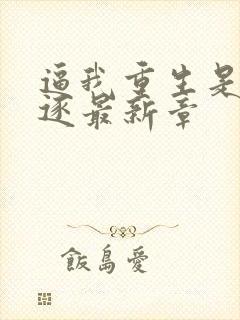 逼我重生是
逐最新章
飯島愛